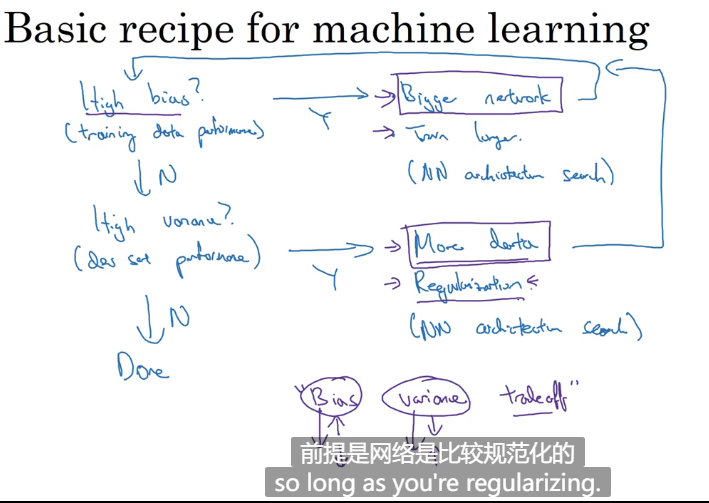 Basic recipe for machine learning
High bias?
(training data performance)
Y
Bigger network
Train longer.
(NN architecture search)
N
High variance?
(dev set performance)
Y
More data
Regularization
(NN architecture search)
N
Done
"Bias variance tradeoff"
前提是网络是比较规范化的
so long as you're regularizing.